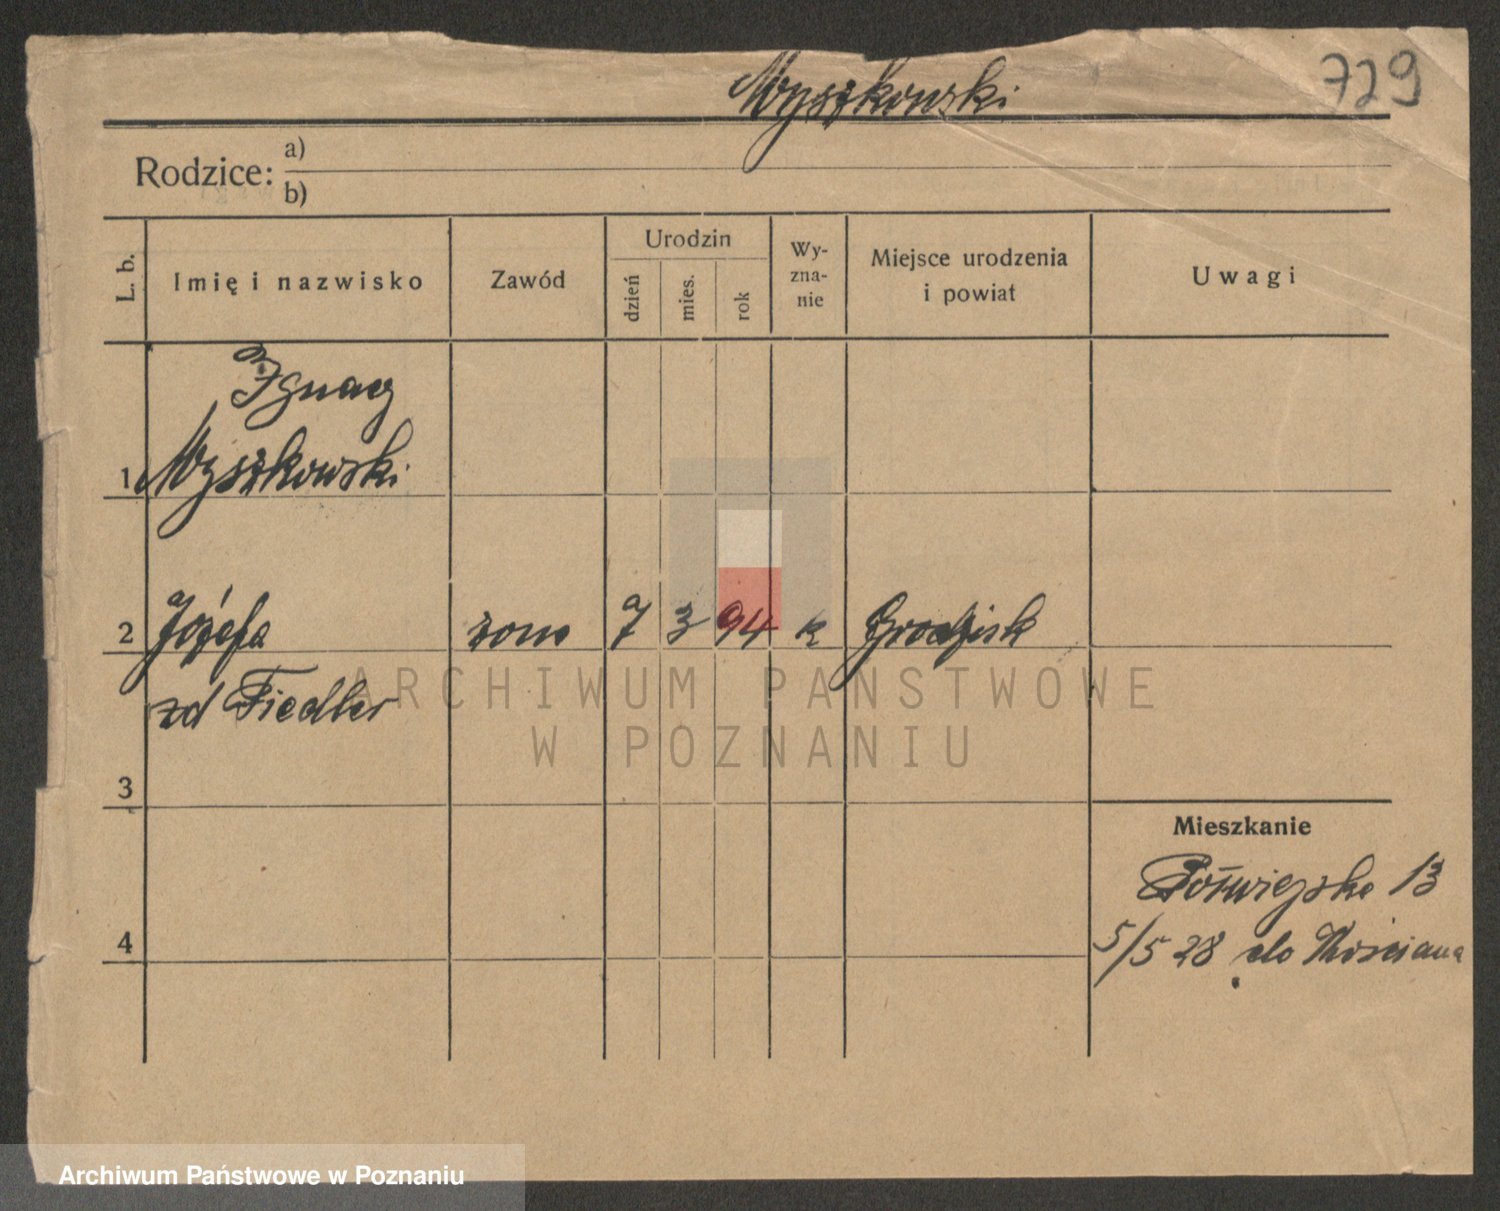 Myszkowski
729
Rodzice:
a)
b)
L. b.
Imię i nazwisko
Zawód
Urodzin
dzień
mies.
rok
Wy-
zna-
nie
Miejsce urodzenia
i powiat
Uwagi
Ignacy
1 Myszkowski
2 Józefa żona 7 3 94 k Grodzisk
zd Fiedler
3
4
Mieszkanie
Półwiejska 13
5/5 28 do Kościana
ARCHIWUM PAŃSTWOWE
W POZNANIU
Archiwum Państwowe w Poznaniu